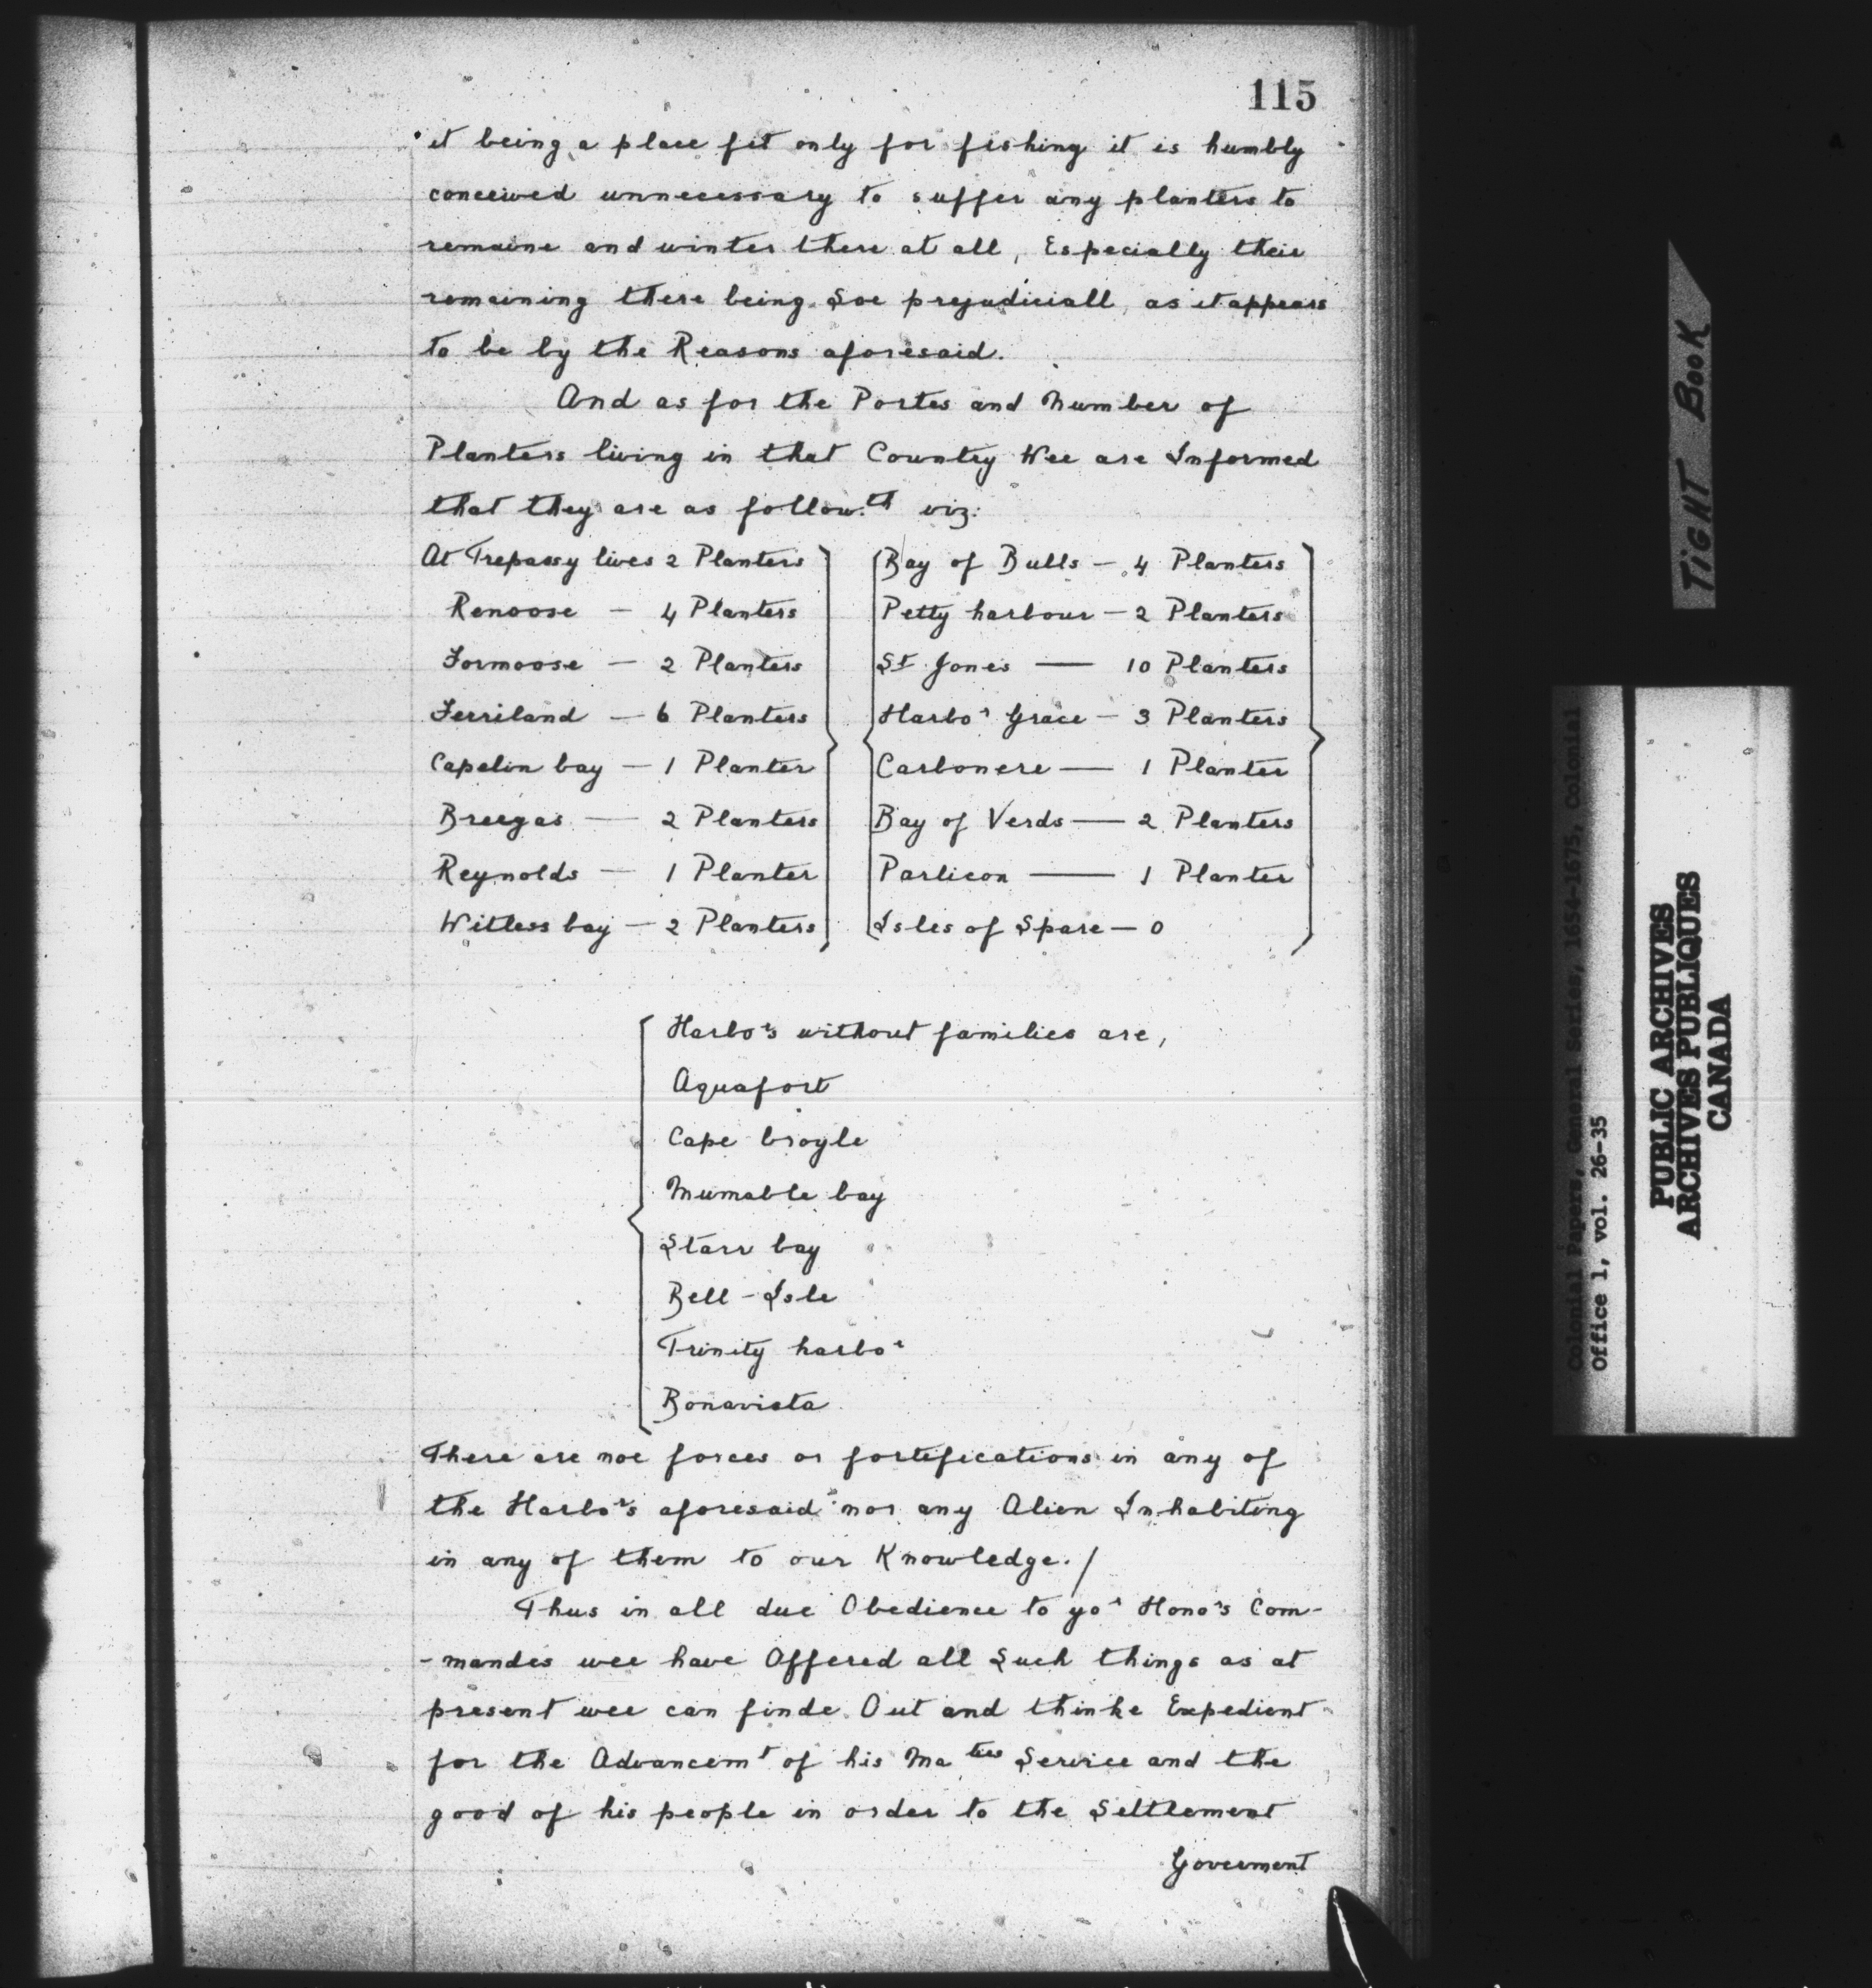 115
it being a place fit only for fishing it is humbly
conceived unnecessary to suffer any planters to
remaine and winter there at all, Especially their
remaining there being Soe prejudiciall, as it appears
to be by the Reasons aforesaid.
And as for the Portes and Number of
Planters living in that Country Wee are Informed
that they are as follow.th viz:
At Trepassy lives 2 Planters
Renoose — 4 Planters
Formoose — 2 Planters
Ferriland — 6 Planters
Capelin bay — 1 Planter
Breegas — 2 Planters
Reynolds — 1 Planter
Witless bay — 2 Planters
Bay of Bulls — 4 Planters
Petty harbour — 2 Planters
St Jones — 10 Planters
Harbor Grace — 3 Planters
Carbonere — 1 Planter
Bay of Verds — 2 Planters
Parlicon — 1 Planter
Isles of Spare — 0
Harbors without families are,
Aquafort
Cape broyle
Mumable bay
Starr bay
Bell-Isle
Trinity harbor
Bonavista
There are noe forces or fortifications in any of
the Harbors aforesaid nor any Alien Inhabiting
in any of them to our Knowledge./
Thus in all due Obedience to yor Honors Com-
-mandes wee have Offered all Such things as at
present wee can finde Out and thinke Expedient
for the Advancemt of his Maties Service and the
good of his people in order to the Settlement
Goverment
TIGHT BOOK
Colonial Papers, General Series, 1654-1675, Colonial
Office 1, vol. 26-35
PUBLIC ARCHIVES
ARCHIVES PUBLIQUES
CANADA